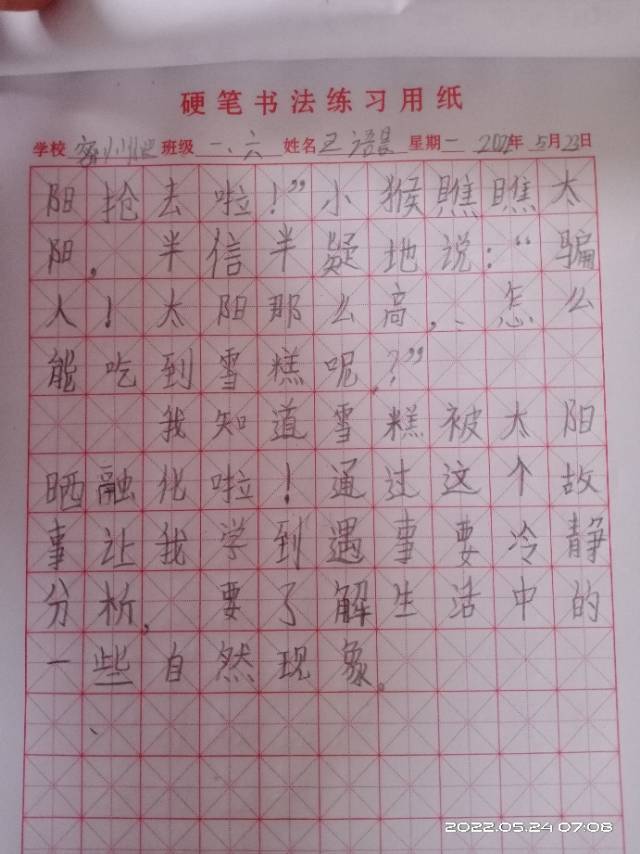 硬笔书法练习用纸
学校 班级 一、六 姓名 王语晨 星期一 2022年5月23日
阳抢去啦！”小猴瞧瞧太
阳，半信半疑地说：“骗
人！太阳那么高，怎么
能吃到雪糕呢？”
我知道雪糕被太阳
晒融化啦！通过这个故
事让我学到遇事要冷静
分析，要了解生活中的
一些自然现象。
2022.05.24 07:08